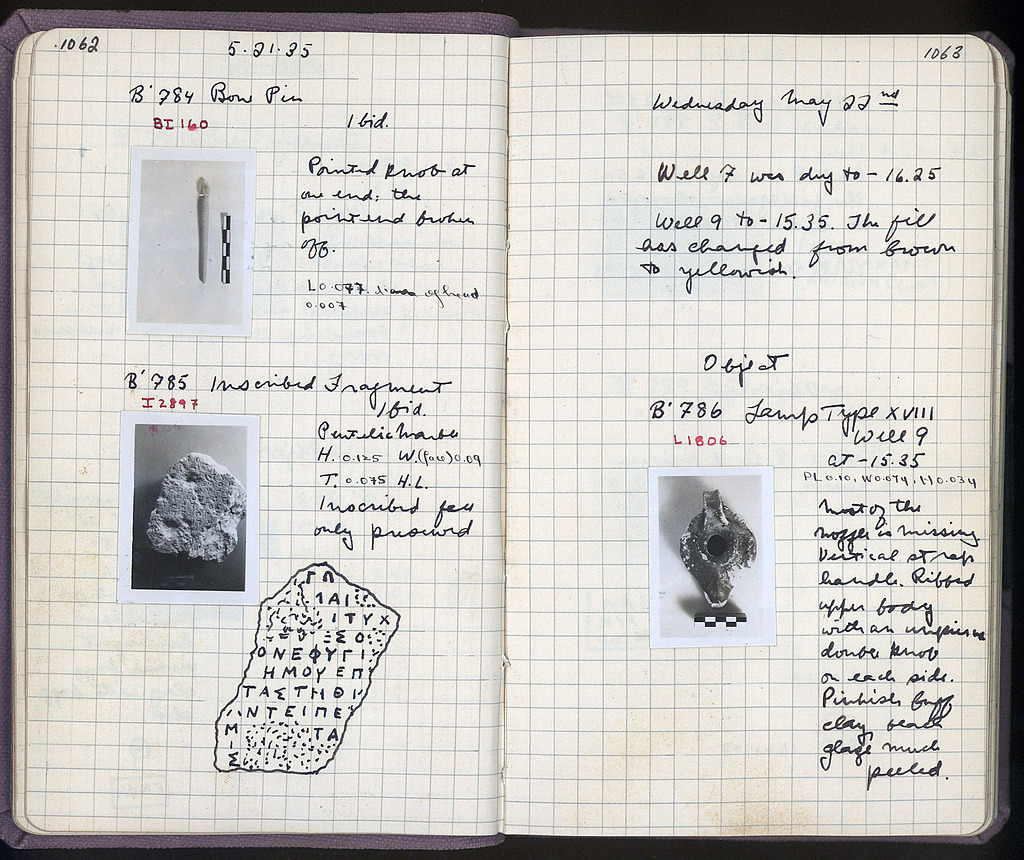 1062
5.21.35
B' 784 Bone Pin
BI 160
Ibid.
Pointed knob at
one end; the
point end broken
off.
L 0.077. diam of head
0.007
B' 785 Inscribed Fragment
I 2897
Ibid.
Pentelic Marble
H. 0.125 W. (face) 0.09
T. 0.075 H.L.
Inscribed face
only preserved
ΓΠ
ΠΑΙ
ΙΤΥΧ
ΞΣΟ
ΟΝΕΦΥΓΙ
ΗΜΟΥΕΠ
ΤΑΣΤΗΘΙ
ΝΤΕΙΠΕ
Μ ΤΑ
Ι
Σ
1063
Wednesday May 22nd
Well 7 was dry to -16.25
Well 9 to -15.35. The fill
has changed from brown
to yellowish.
Object
B' 786 Lamp Type XVIII
L 1806
Well 9
at -15.35
PL 0.10, W 0.074, H 0.034
Most of the
nozzle is missing
Vertical strap
handle. Ribbed
upper body
with an
double knob
on each side.
Pinkish buff
clay, black
glaze much
peeled.